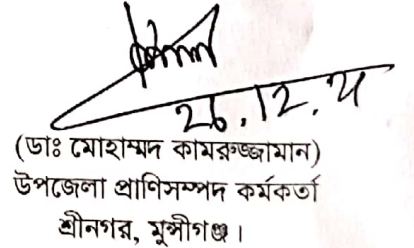 26.12.24
(ডাঃ মোহাম্মদ কামরুজ্জামান)
উপজেলা প্রাণিসম্পদ কর্মকর্তা
শ্রীনগর, মুন্সীগঞ্জ।